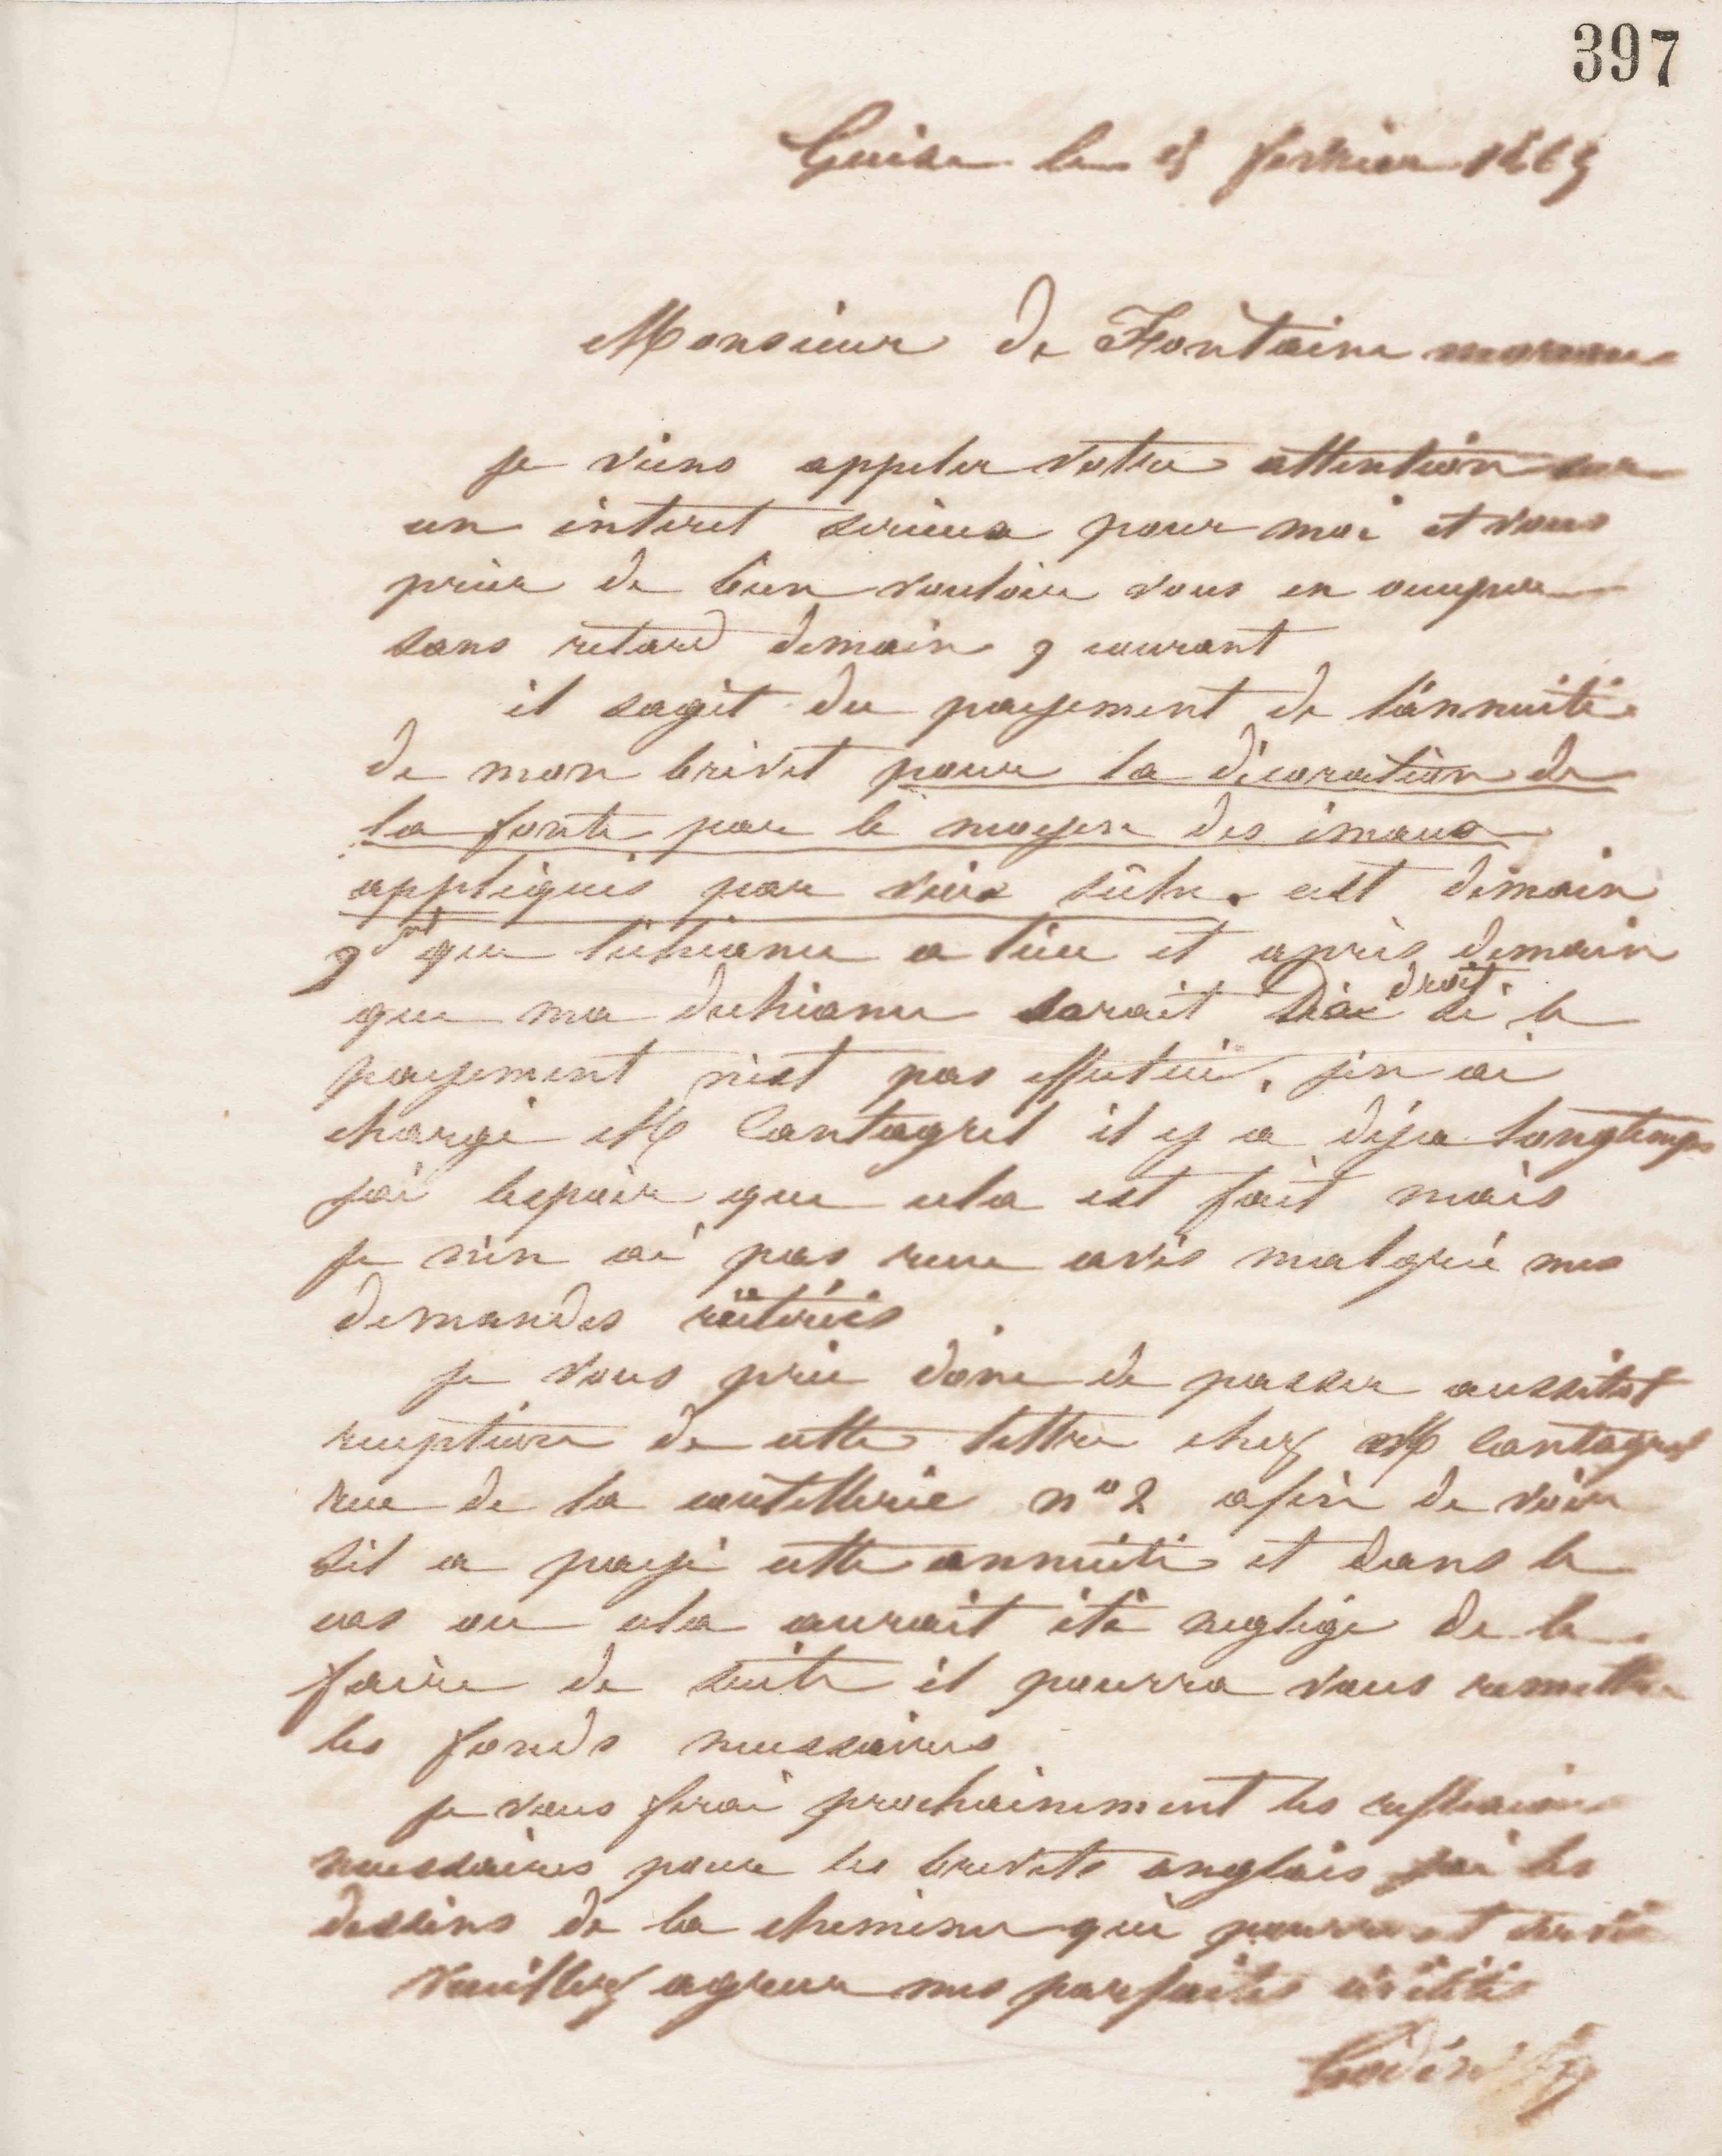 397
Guise le 8 fevrier 1865
Monsieur de Fontaine moreau
je viens appeler votre attention sur
un interet serieux pour moi et vous
prier de bien vouloir vous en occuper
sans retard demain 9 courant
il sagit du payement de l'annuité
de mon brevet pour la décoration de
la fonte par le moyen des émaux
appliqués par voie sèche. cest demain
9 que lécheance a lieu et après demain
que ma decheance serait de droit si le
payement n'est pas effectué. j'en ai
chargé M Cantagrel il y a déja longtemps
j'ai lespoir que cela est fait mais
je n'en ai pas recu avis malgré mes
demandes réitérées
je vous prie donc de passer aussitot
reception de cette lettre chez M Cantagrel
rue de la coutellerie n° 2 afin de voir
sil a payé cette annuité et dans le
cas ou cela aurait été negligé de le
faire de suite il pourra vous remettre
les fonds necessaires
je vous ferai prochainement les
necessaires pour les brevets anglais j'ai les
dessins de la cheminee qui pourront servir
Veuillez agreer mes parfaites civilités
Godin